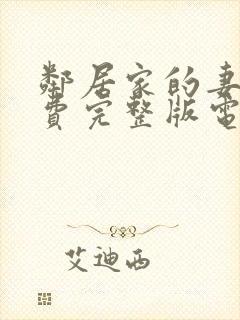 鄰居家的妻
費完整版電
艾迪西